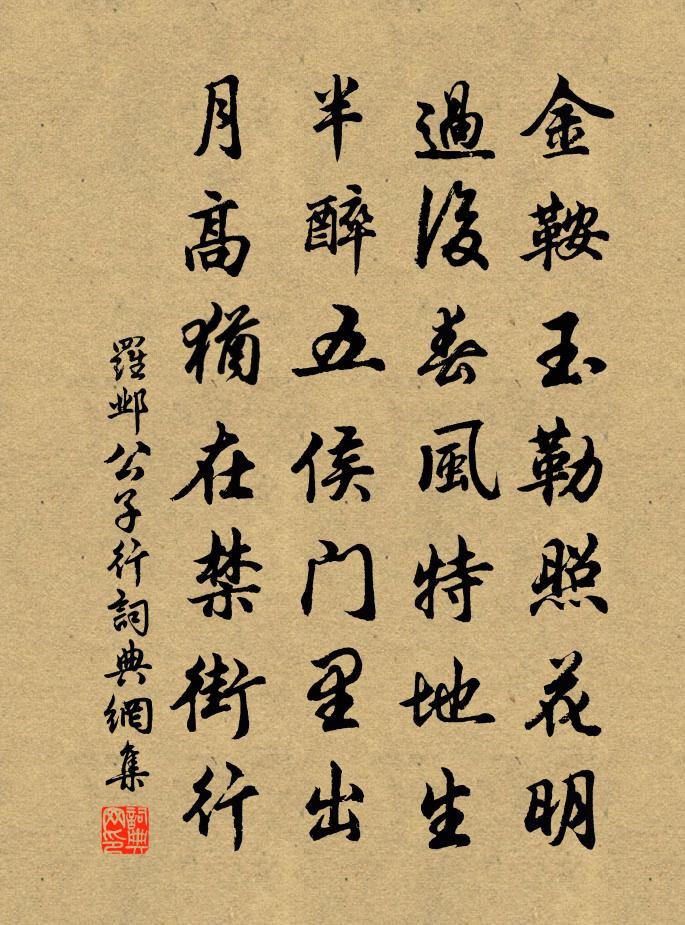 金鞍玉勒照花明
過後春風特地生
半醉五侯门里出
月高猶在禁街行
羅邺公子行詞典網集
詞典网印